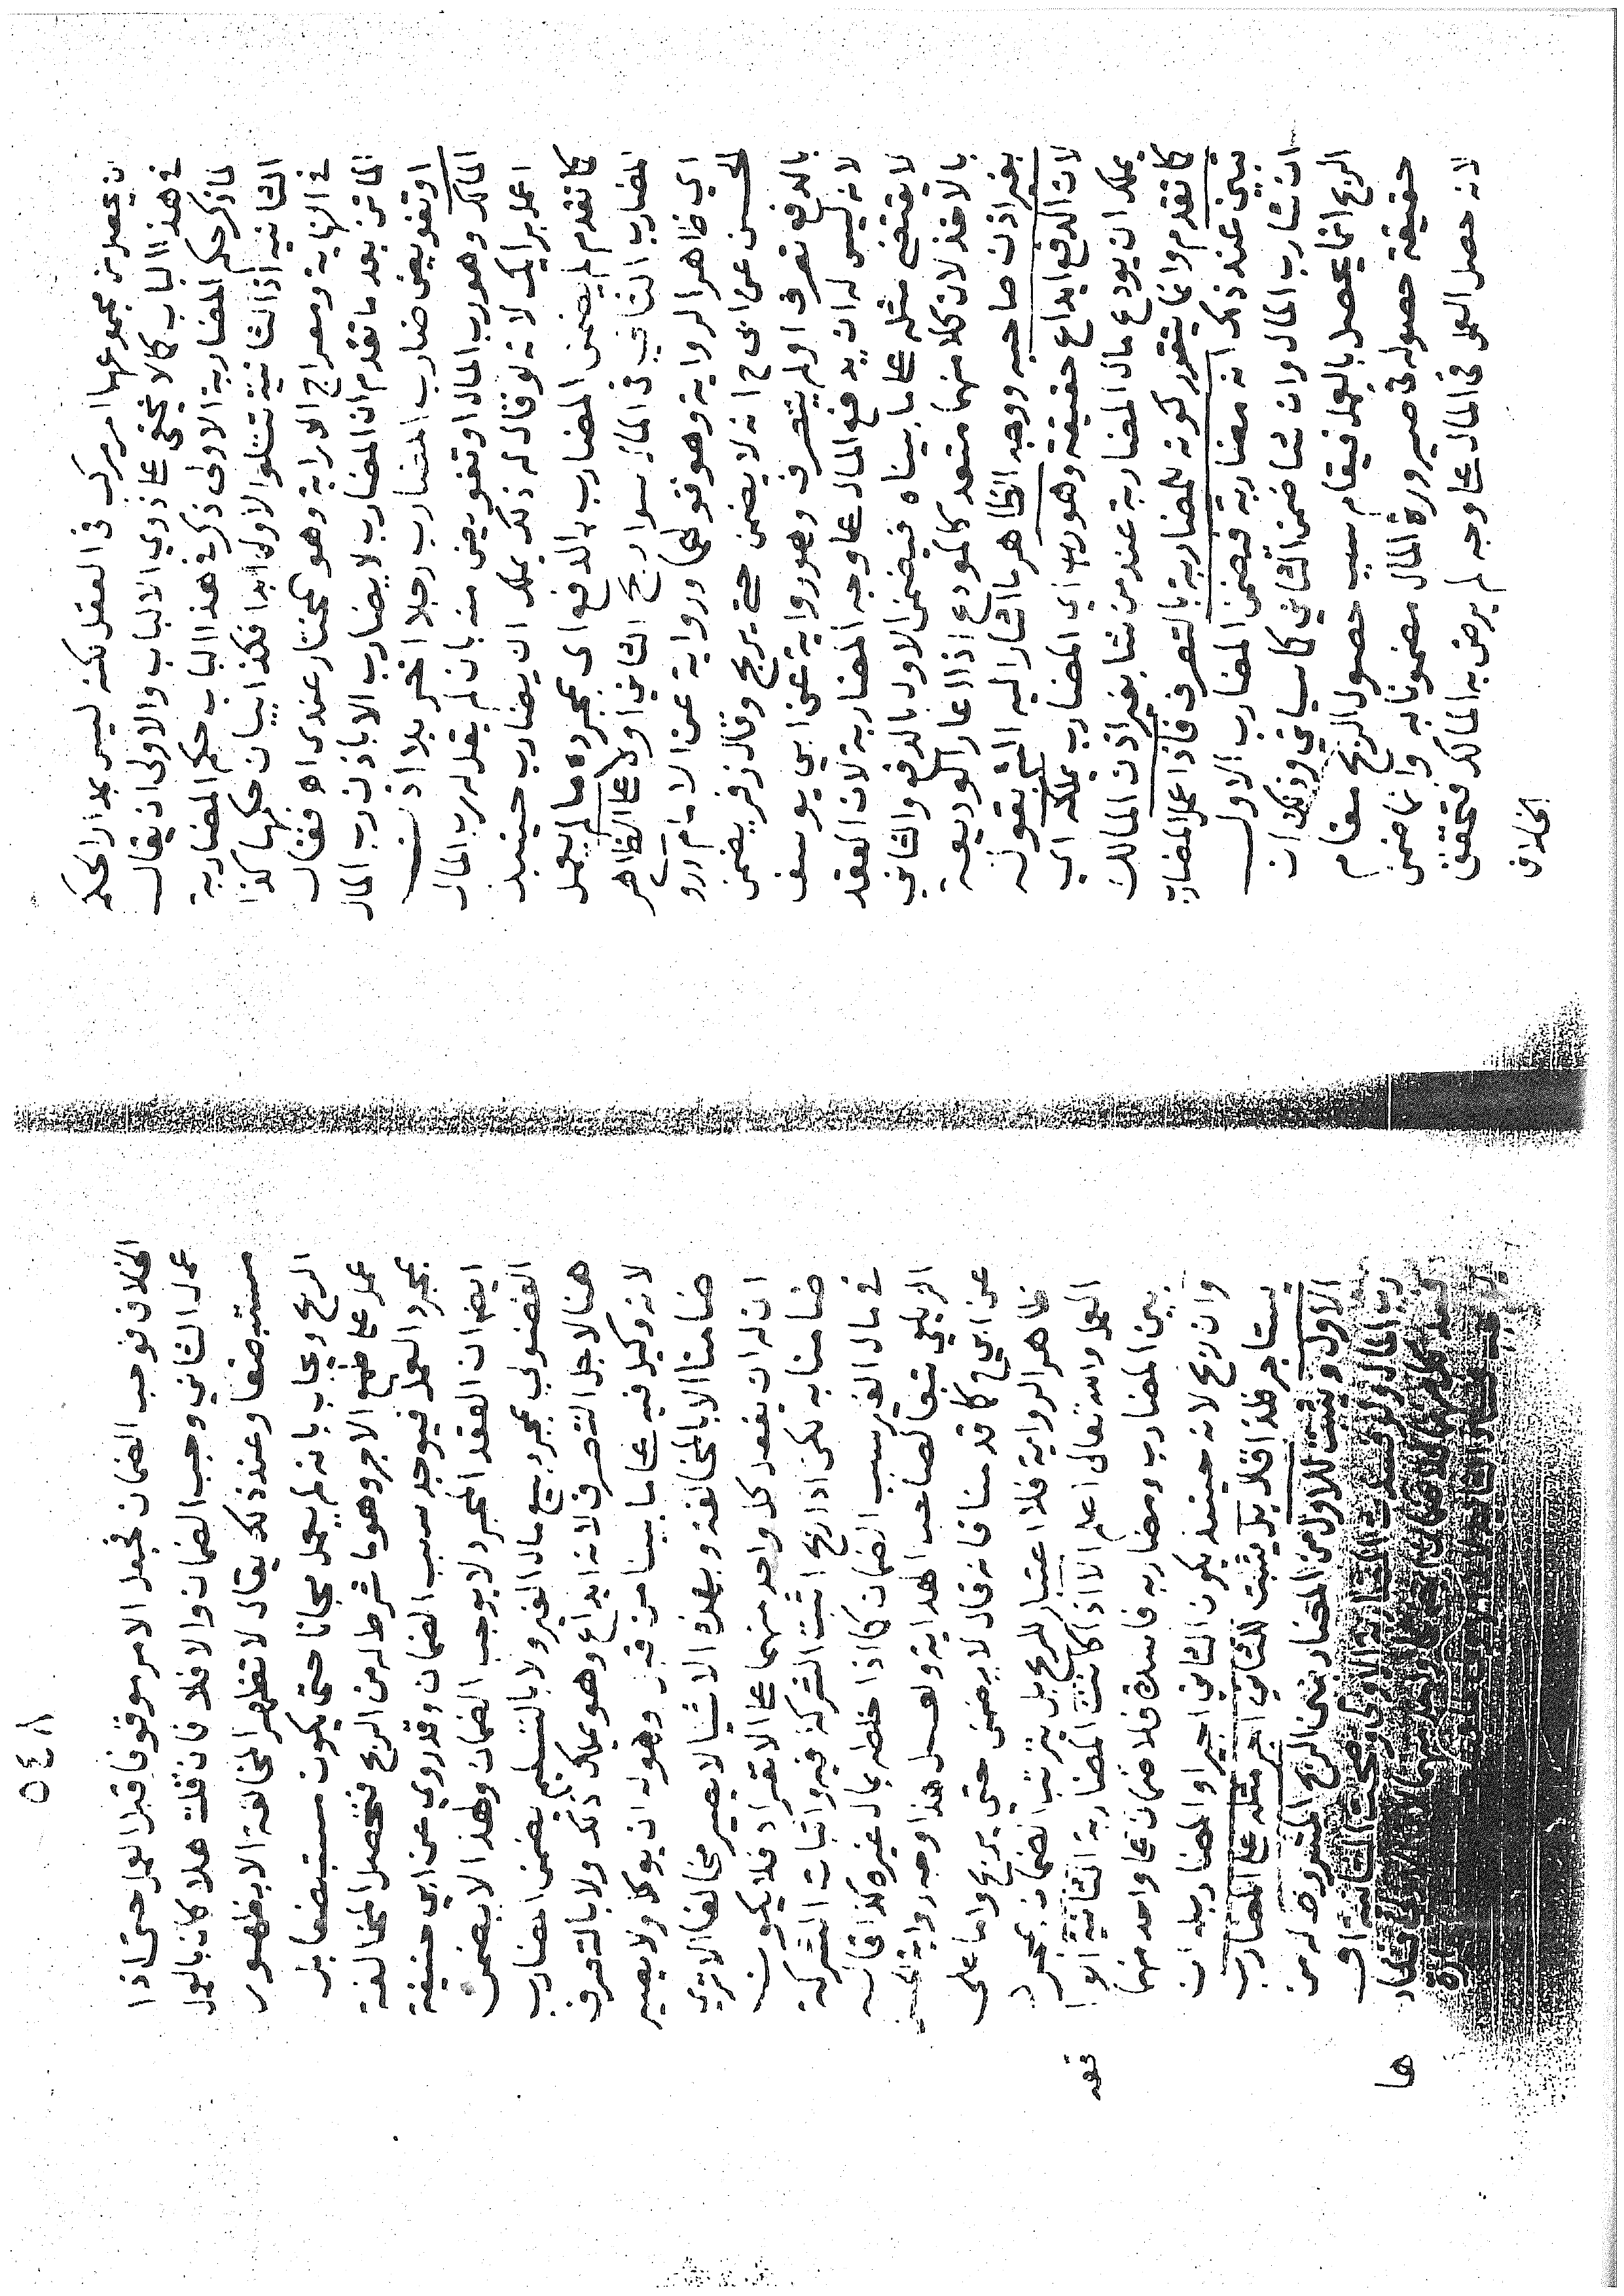 ن يحصل من مجموعها امر مركب في العقل لكنه ليس مدار الحكم
في هذا الباب كما لا يخفى على ذوي الالباب والاولى ان يقال
لما ذكر حكم المضاربة الاولى ذكر في هذا الباب حكم المضاربة
الثانية اذ الثانية تتلوا الاولى ابدا فكذا بيان حكمها كذا
في النهاية ومعراج الدراية وهو المختار عندي اه فقال
الماتن بعد ما تقدم ان المضارب لا يضارب الا باذن رب المال
او تفويض ضارب المضارب رجلا اخر بلا اذن
المالك وهو رب المال او تفويض منه بان لم يقل له رب المال
اعمل برايك لانه لو قال له ذلك يملك ان يضارب حينئذ
كما تقدم لم يضمن المضارب بالدفع اي بمجرده ما لم يعمل
المضارب الثاني في المال سواء ربح الثاني او لا على الظاهر
اي ظاهر الرواية وهو قولهما ورواية عن الامام وروى
الحسن عن ابي ح انه لا يضمن حتى يربح وقال زفر يضمن
بالدفع تصرف او لم يتصرف وهو رواية عن ابي يوسف
لانه ليس له ان يدفع المال على وجه المضاربة لان العقد
لا يقتضي مثله على ما بيناه فيضمن الاول بالدفع والثاني
بالاخذ لان كلا منهما متعد كالمودع اذا اعار الوديعة
بغير اذن صاحبه ووجه الظاهر ما اشار اليه الش بقوله
لان الدفع ايداع حقيقة وهو اي المضارب يملكه اي
يملك ان يودع مال المضاربة عند من شا بغير اذن المالك
كما تقدم وانما يتقرر كونه للمضاربة بالتصرف فاذا عمل المضارب
تبين عند ذلك انه مضاربة فضمن المضارب الاول
ان شا رب المال وان شا ضمن الثاني كما سياتي وذلك ان
الربح انما يحصل بالعمل فيقام سبب حصول الربح مقام
حقيقة حصوله في صيرورة المال مضمونا به وانما ضمن
لانه حصل العمل في المال على وجه لم يرض به المالك فتحقق
الخلاف
٥٤٨
الخلاف فوجب الضمان فجعل الامر موقوفا قبل العمل حتى اذا
عمل الثاني وجب الضمان والا فلا فان قلت هلا كان بالعمل
مستبضعا وعند ذلك يقال لا تظهر المخالفة الا بظهور
الربح ويجاب بانه لم يعمل مجانا حتى يكون مستبضعا بل
عمل على طمع الاجر وهو ما شرط له من الربح فتحصل المخالفة
بمجرد العمل فيوجد سبب الضمان وقد روي عن ابي حنيفة
ايضا ان العقد المجرد لا يوجب الضمان ولهذا لا يضمن
الفضولي بمجرد بيع مال الغير ولا بالتسليم يضمن المضارب
هنا لاجل التصرف لانه ايداع وهو يملك ذلك ولا بالتصرف
لانه وكيل فيه على ما بينا من قبل وهو له ان يوكل ولا يصير
ضامنا الا بالمخالفة وبهذه الاشيا لا يصير مخالفا الا ترى
ان له ان يفعل كل واحد منهما على الانفراد فلا يكون
ضامنا به لكن اذا ربح اثبت الشركة فيه واثبات الشركة
في مال الغير سبب الضمان كما اذا خلطه بمال غيره كذا قال
الزيلعي تبعا لصاحب الهداية ولعل هذا وجه رواية الحسن
عن ابي ح كما قدمنا فانه قال لا يضمن حتى يربح واما على
ظاهر الرواية فلا اعتبار للربح بل يترتب الضمان بمجرد
العمل والله تعالى اعلم الا اذا كانت المضاربة الثانية
بين المضارب ومضاربه فاسدة فلا ضمان على واحد منهما
وان ربح لانه حينئذ يكون الثاني اجيرا وللمضارب ان
يستاجر فلذا قال بل يثبت للثاني اجر مثله على المضارب
الاول ويثبت للاول من المضاربتين الربح المشروط له من
رب المال
فقه
ها